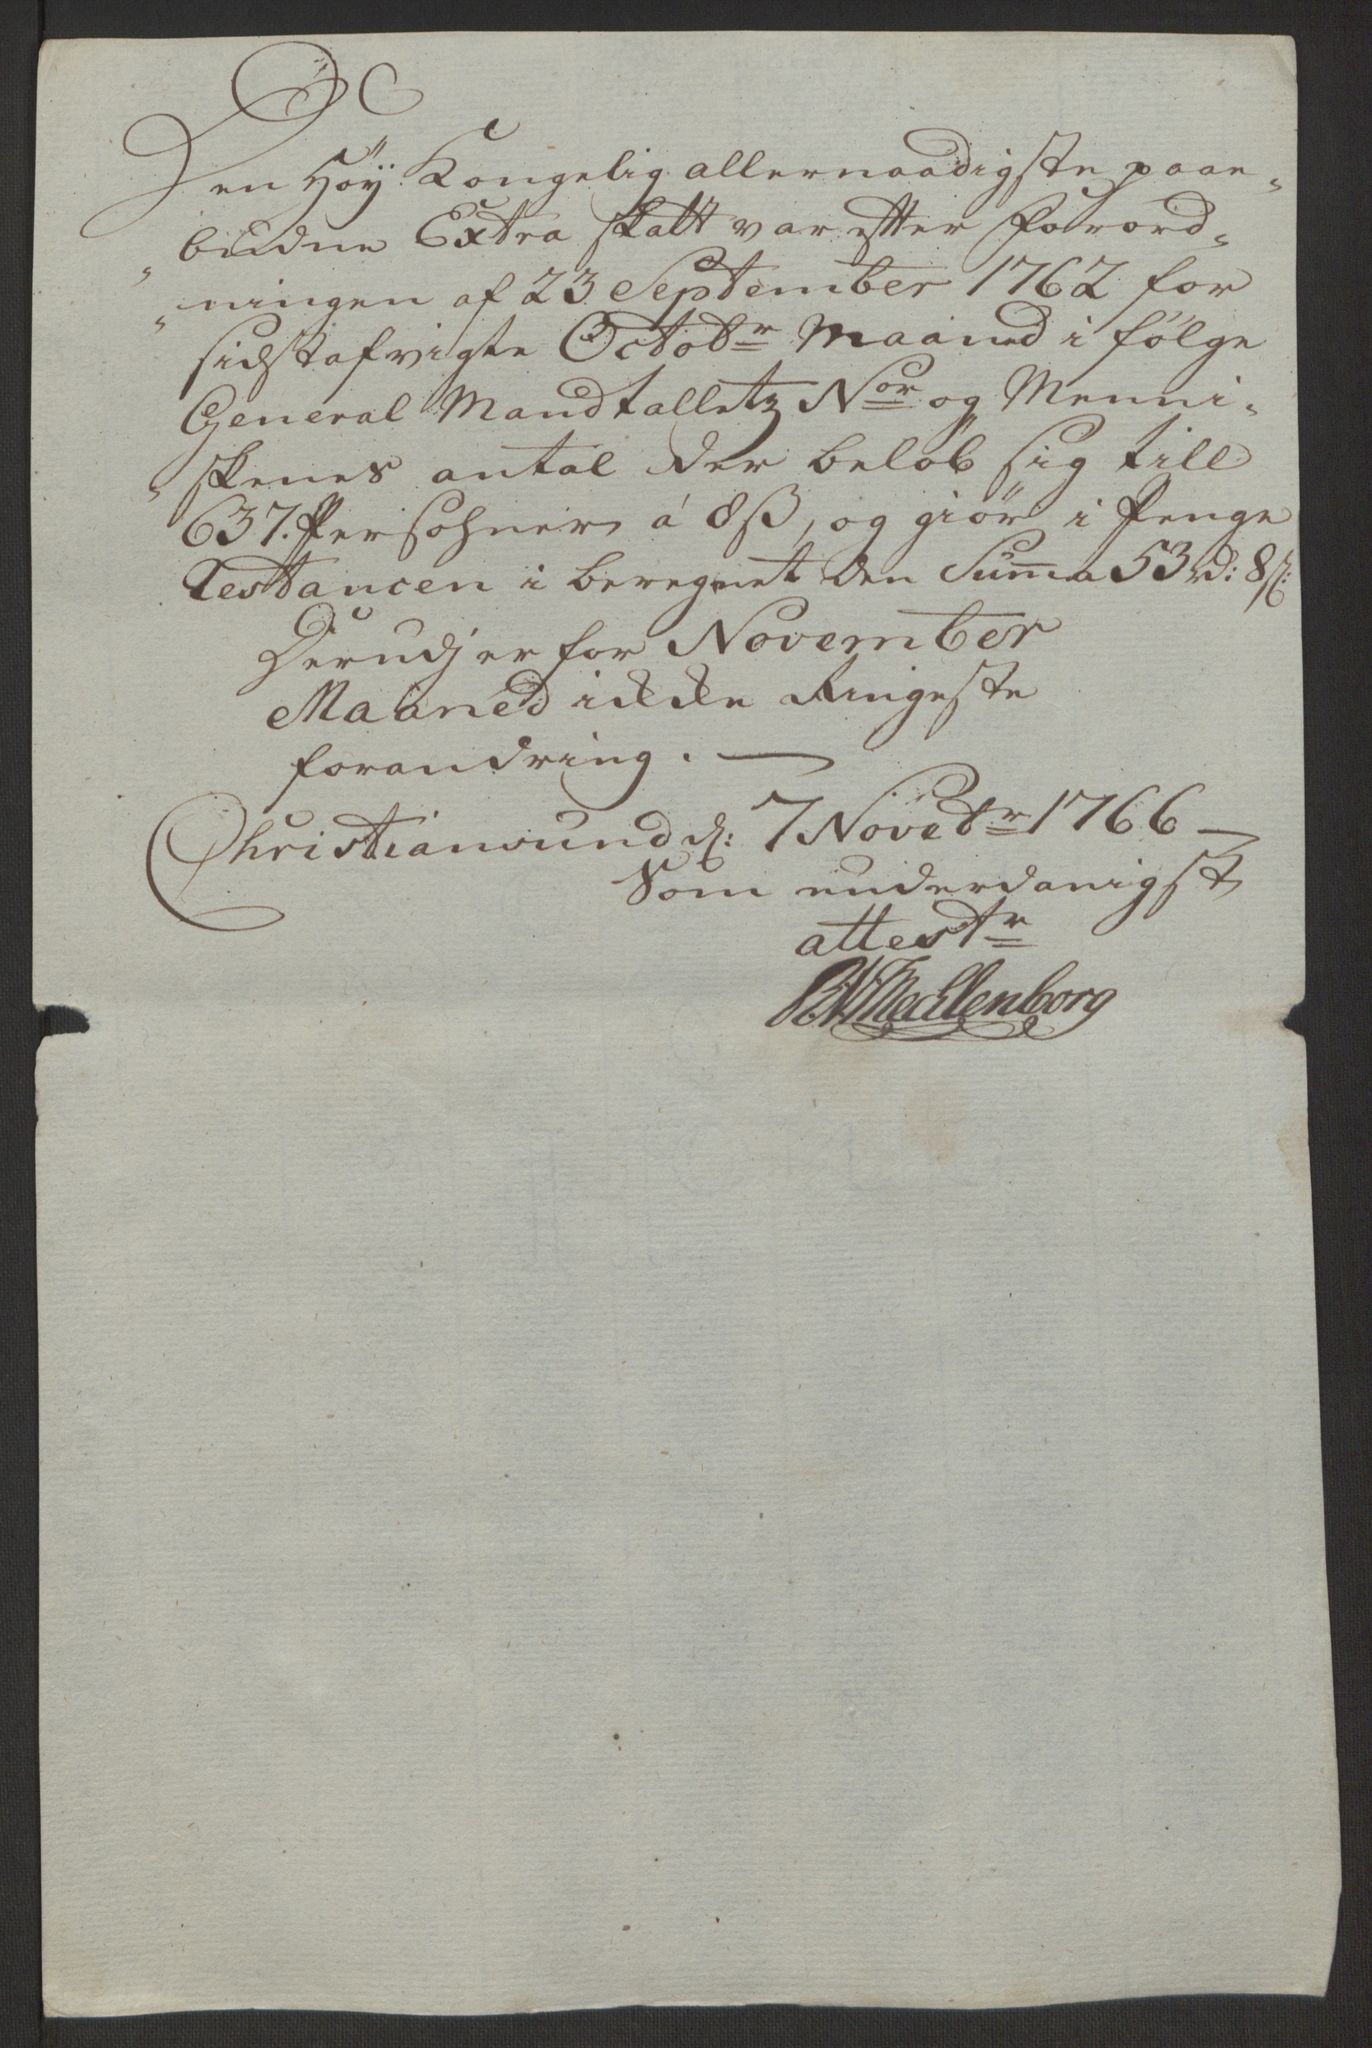 Den Höy Kongelig allernaadigste paae„
„büdne Extra Skatt var efter Forord„
„ningen af 23 September 1762 for
sidstafvigte Octobr Maaned i følge
General Mandtalletz Nor og Menni„
„skenes antal der beløb sig till
637. Persohner á 8ß, og giør i Penge
i beregnet den Summa 53 rd: 8ß:
Derudj er for November
Maaned idde Ringeste
forandring.
Christiansund d: 7 Novebr 1766
Som underdanigst
attestr
Mechlenborg